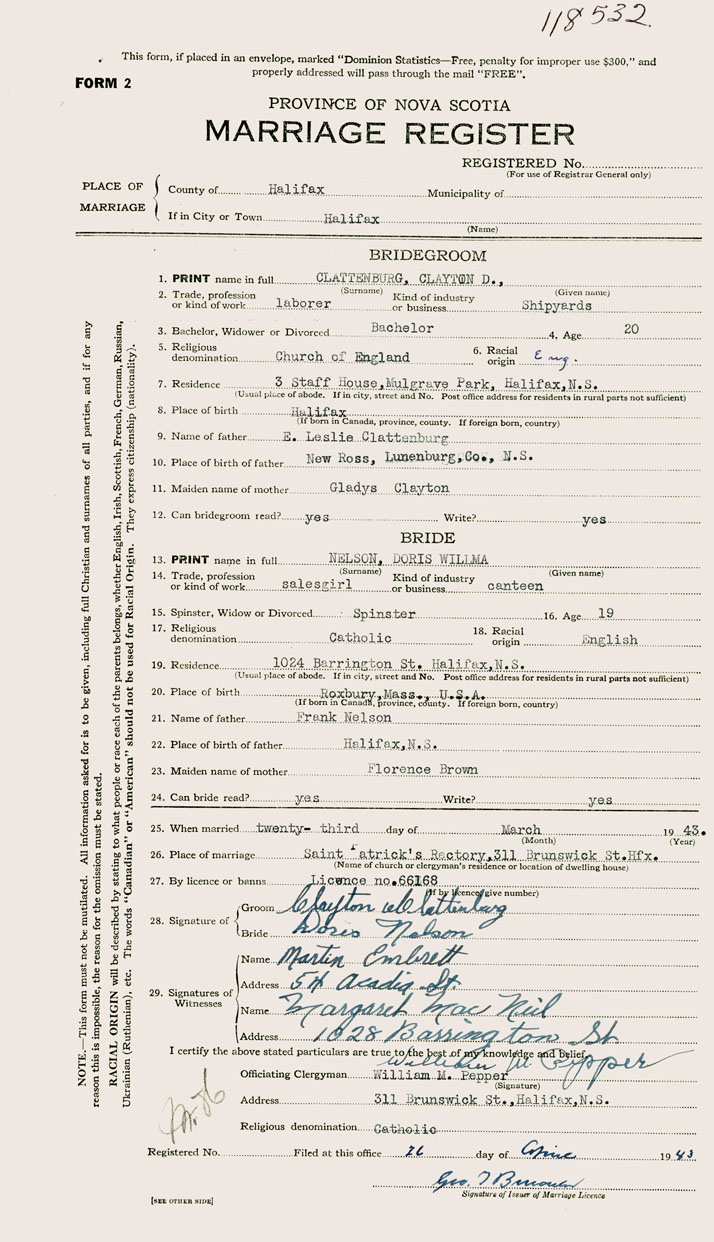 118532.
This form, if placed in an envelope, marked "Dominion Statistics—Free, penalty for improper use $300," and
properly addressed will pass through the mail "FREE".
FORM 2
PROVINCE OF NOVA SCOTIA
MARRIAGE REGISTER
REGISTERED No.
(For use of Registrar General only)
PLACE OF MARRIAGE
County of Halifax Municipality of
If in City or Town Halifax
(Name)
BRIDEGROOM
1. PRINT name in full CLATTENBURG, CLAYTON D.,
(Surname) (Given name)
2. Trade, profession or kind of work laborer Kind of industry or business Shipyards
3. Bachelor, Widower or Divorced Bachelor 4. Age 20
5. Religious denomination Church of England 6. Racial origin Eng.
7. Residence 3 Staff House,Mulgrave Park, Halifax,N.S.
(Usual place of abode. If in city, street and No. Post office address for residents in rural parts not sufficient)
8. Place of birth Halifax
(If born in Canada, province, county. If foreign born, country)
9. Name of father E. Leslie Clattenburg
10. Place of birth of father New Ross, Lunenburg,Co., N.S.
11. Maiden name of mother Gladys Clayton
12. Can bridegroom read? yes Write? yes
BRIDE
13. PRINT name in full NELSON, DORIS WILLMA
(Surname) (Given name)
14. Trade, profession or kind of work salesgirl Kind of industry or business canteen
15. Spinster, Widow or Divorced Spinster 16. Age 19
17. Religious denomination Catholic 18. Racial origin English
19. Residence 1024 Barrington St. Halifax,N.S.
(Usual place of abode. If in city, street and No. Post office address for residents in rural parts not sufficient)
20. Place of birth Roxbury,Mass., U.S.A.
(If born in Canada, province, county. If foreign born, country)
21. Name of father Frank Nelson
22. Place of birth of father Halifax,N.S.
23. Maiden name of mother Florence Brown
24. Can bride read? yes Write? yes
25. When married twenty- third day of March 19 43.
(Month) (Year)
26. Place of marriage Saint Patrick's Rectory,311 Brunswick St.Hfx.
(Name of church or clergyman's residence or location of dwelling house)
27. By licence or banns Licence no.66168
(If by licence, give number)
28. Signature of
Groom Clayton D Clattenburg
Bride Doris Nelson
29. Signatures of Witnesses
Name Martin Embrett
Address 54 Acadia St.
Name Margaret Mac Neil
Address 1028 Barrington St
I certify the above stated particulars are true to the best of my knowledge and belief.
William M. Pepper
Officiating Clergyman William M. Pepper
(Signature)
Address 311 Brunswick St.,Halifax,N.S.
Religious denomination Catholic
Registered No. Filed at this office 26 day of 19 43
Geo.
Signature of Issuer of Marriage Licence
[SEE OTHER SIDE]
NOTE.—This form must not be mutilated. All information asked for is to be given, including full Christian and surnames of all parties, and if for any
reason this is impossible, the reason for the omission must be stated.
RACIAL ORIGIN will be described by stating to what people or race each of the parents belongs, whether English, Irish, Scottish, French, German, Russian,
Ukrainian (Ruthenian), etc. The words "Canadian" or "American" should not be used for Racial Origin. They express citizenship (nationality).